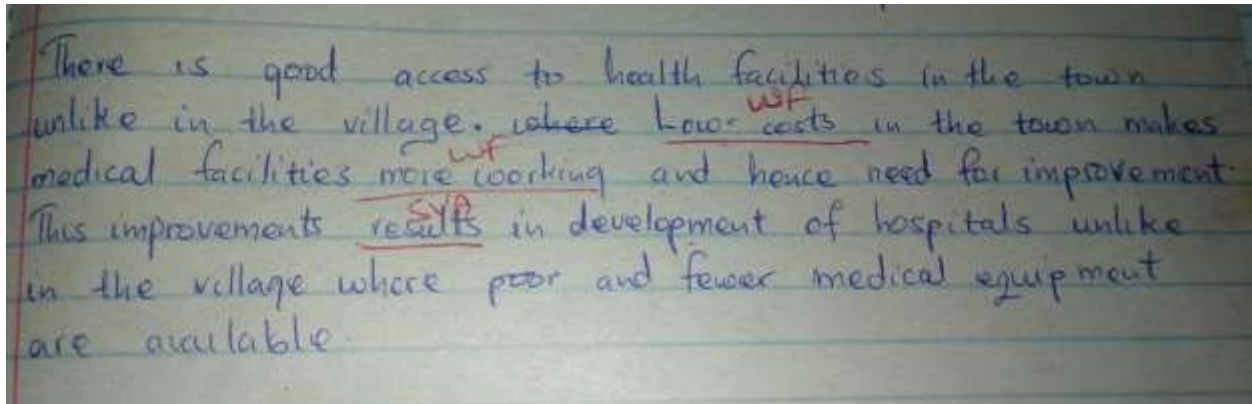 There is good access to health facilities in the town
unlike in the village. where Low costs in the town makes
WF
medical facilities more working and hence need for improvement.
WF
This improvements results in development of hospitals unlike
SVA
in the village where poor and fewer medical equipment
are available.